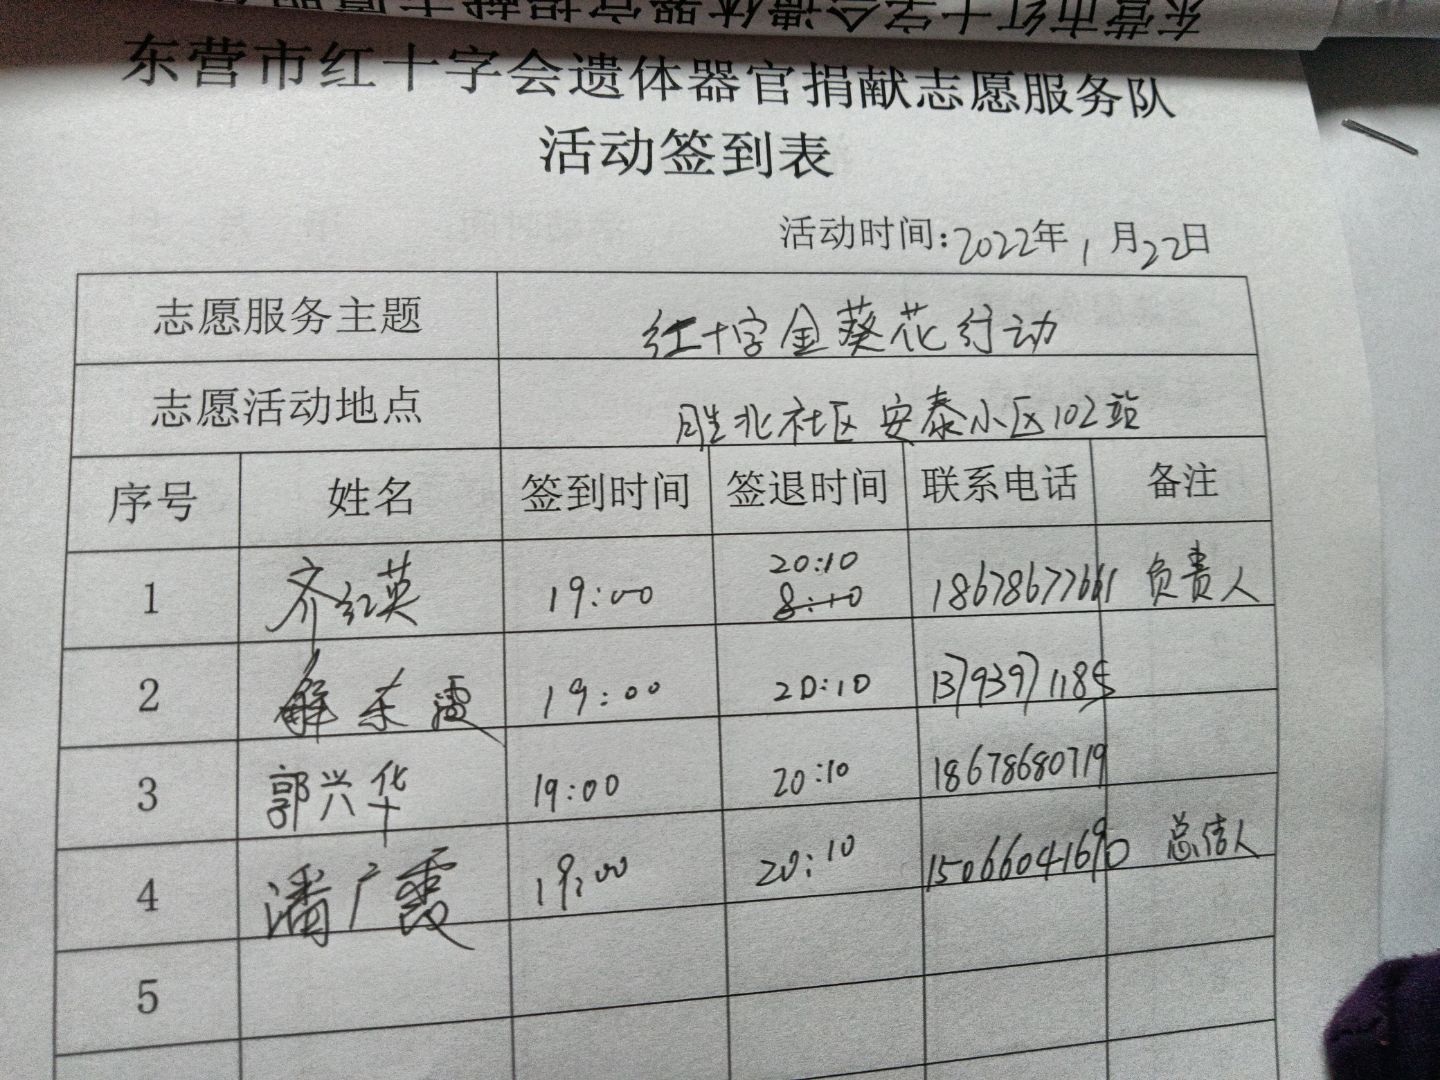 东营市红十字会遗体器官捐献志愿服务队
东营市红十字会遗体器官捐献志愿服务队
活动签到表
活动时间:2022年1月22日
志愿服务主题 红十字金葵花行动
志愿活动地点 胜北社区安泰小区102站
序号 姓名 签到时间 签退时间 联系电话 备注
20:10
1 齐红英 19:00 8:10 18678677661 负责人
2 解东 19:00 20:10 13793971185
3 郭兴华 19:00 20:10 18678680719
4 潘广霞 19:00 20:10 15066041690 总结人
5